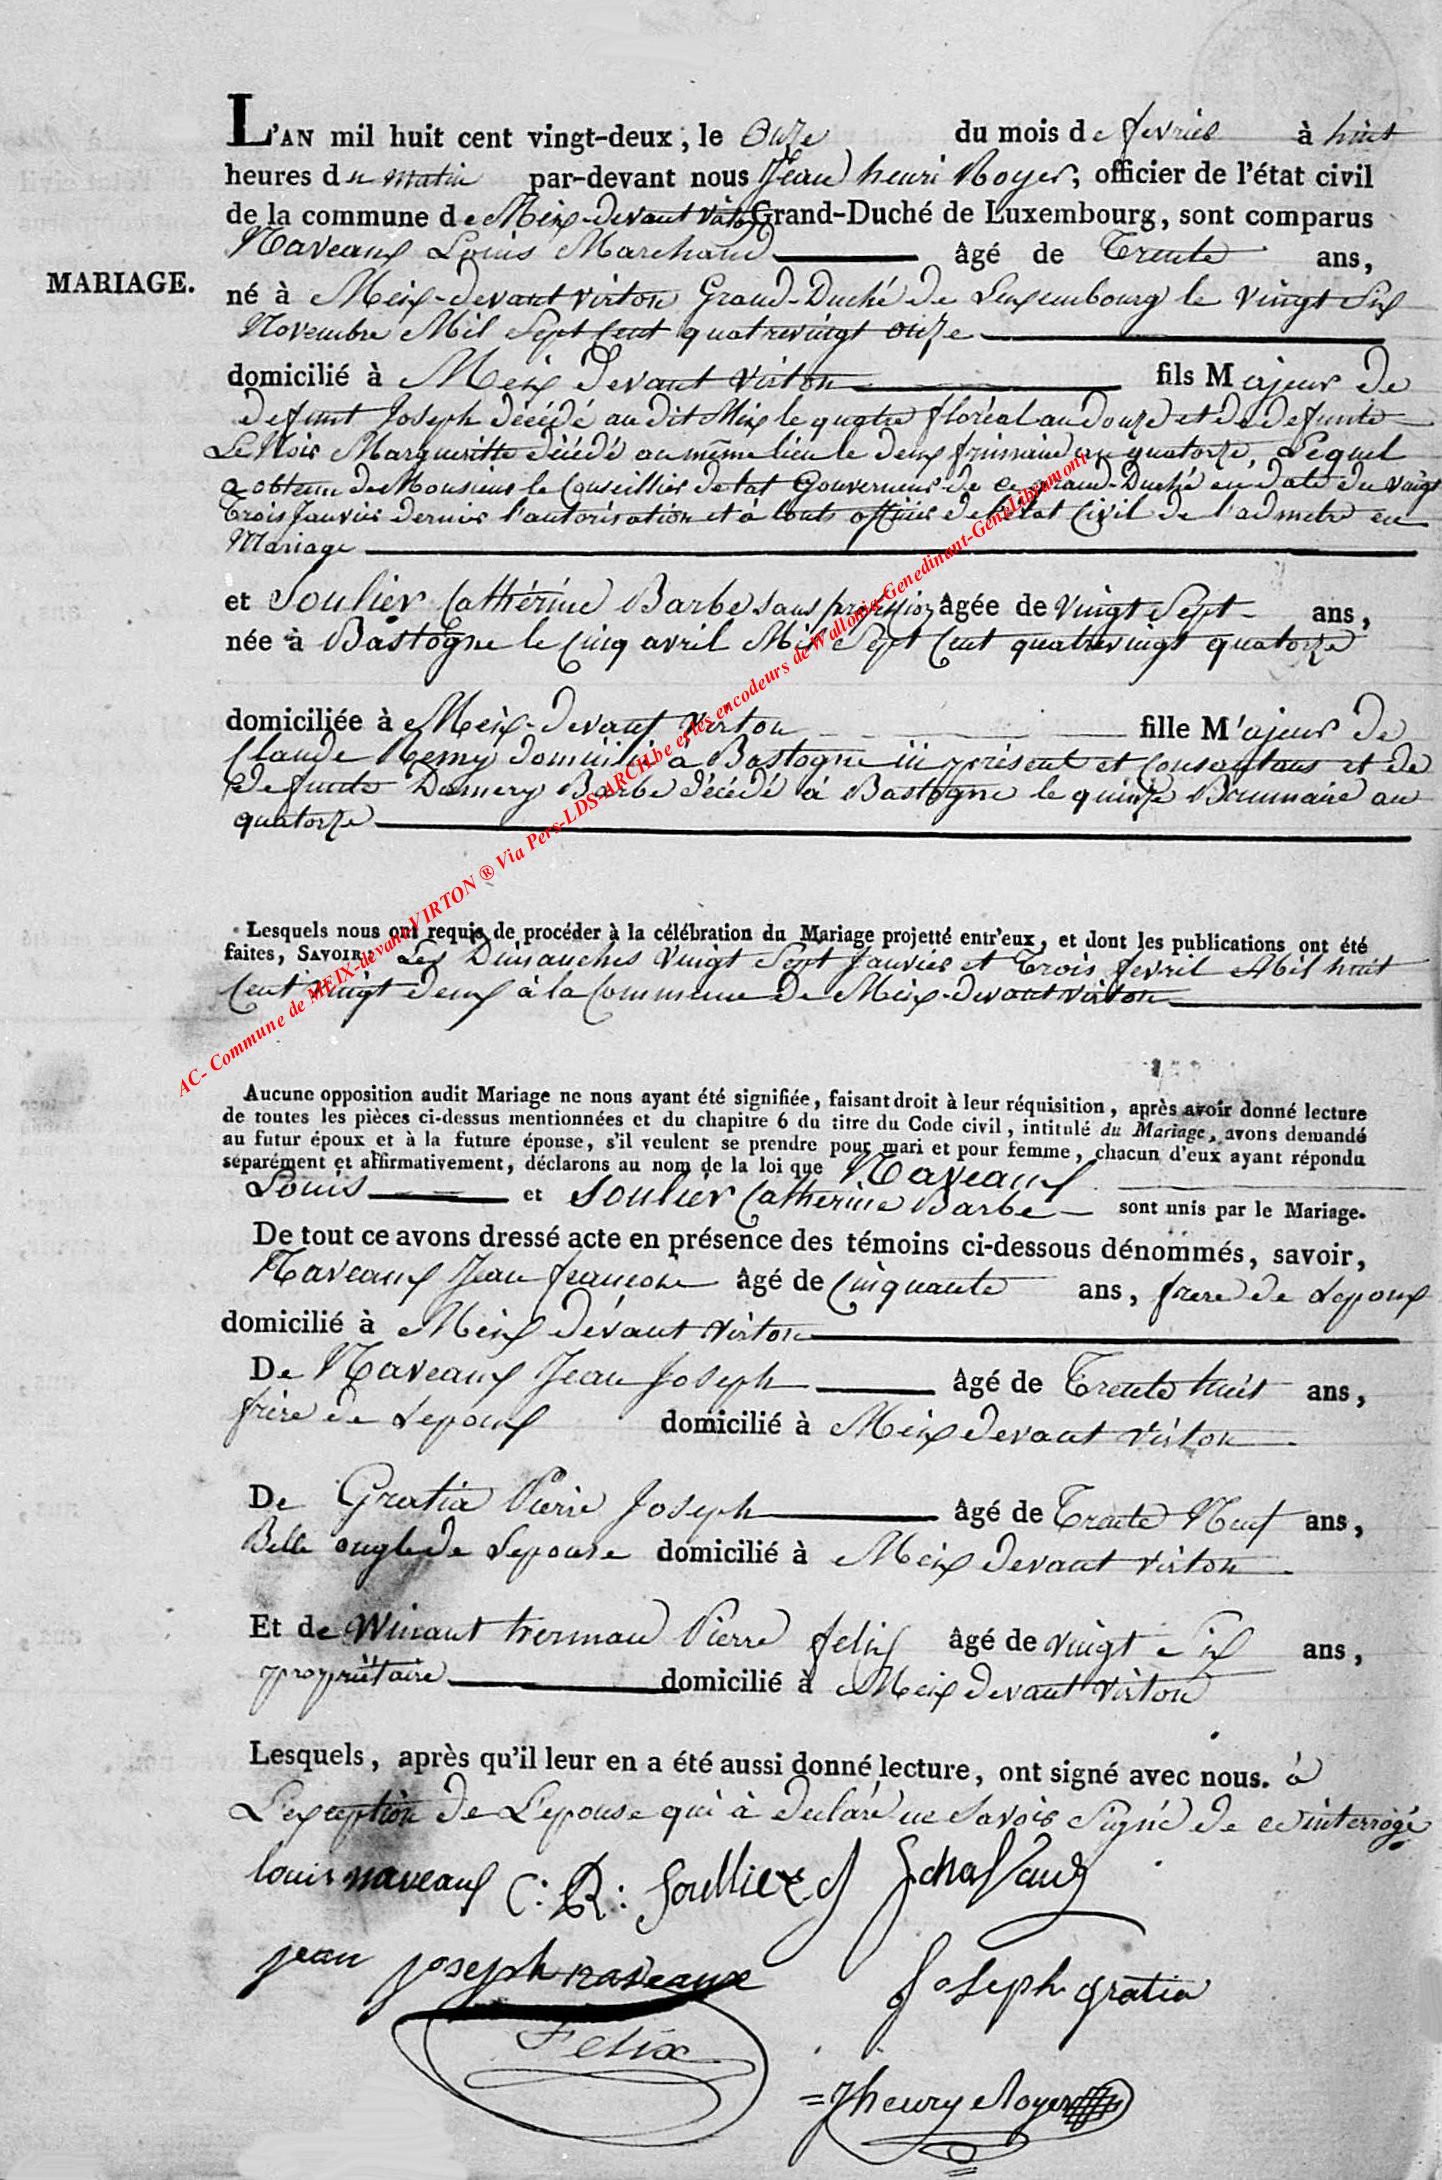 L'AN mil huit cent vingt-deux, le Onze du mois de fevrier à huit
heures du matin par-devant nous Jean henri Royer, officier de l'état civil
de la commune de Meix-devant virton Grand-Duché de Luxembourg, sont comparus
Naveaux Louis Marchand âgé de Trente ans,
MARIAGE.
né à Meix-devant virton Grand-Duché de Luxembourg le vingt Six
Novembre Mil Sept Cent quatrevingt onze
domicilié à Meix devant virton fils Majeur de
defunt Joseph décédé au dit Meix le quatre floréal an douze et de defunte
Le Noir Margueritte décédé au même lieu le deux frimaire an quatorze, Lequel
a obtenu de Monsieur le Conseillier detat Gouverneur de ce Grand-Duché en date du vingt
Trois Janvier dernier l'autorisation et à touts officier de l'état Civil de l'admetre en
Mariage
et Soulier Cathérine Barbe sans profession âgée de vingt Sept ans,
née à Bastogne le Cinq avril Mil Sept Cent quatrevingt quatorze
domiciliée à Meix-devant virton fille Majeur de
Claude Remy domicilié à Bastogne ici présent et Consentant et de
defunte Damery Barbe décédé à Bastogne le quinze Brumaire an
quatorze
Lesquels nous ont requis de procéder à la célébration du Mariage projetté entr'eux, et dont les publications ont été
faites, SAVOIR: Les Dimanches vingt Sept Janvier et Trois fevril Mil huit
Cent vingt deux à la Commune de Meix-devant virton
AC- Commune de MEIX-devant-VIRTON ® Via Pers-LDS-ARCH.be et les encodeurs de Wallonia-Genedinant-GeneLibramont
Aucune opposition audit Mariage ne nous ayant été signifiée, faisant droit à leur réquisition, après avoir donné lecture
de toutes les pièces ci-dessus mentionnées et du chapitre 6 du titre du Code civil, intitulé du Mariage, avons demandé
au futur époux et à la future épouse, s'il veulent se prendre pour mari et pour femme, chacun d'eux ayant répondu
séparément et affirmativement, déclarons au nom de la loi que Naveaux
Louis et Soulier Catherine Barbe sont unis par le Mariage.
De tout ce avons dressé acte en présence des témoins ci-dessous dénommés, savoir,
Naveaux Jean francois âgé de Cinquante ans, frere de Lepoux
domicilié à Meix dévant virton
De Naveaux Jean Joseph âgé de Trente huit ans,
frère de Lepoux domicilié à Meix devant virton
De Gratia Pierre Joseph âgé de Trente Neuf ans,
Belle ongle de Lepouse domicilié à Meix devant virton
Et de Winant herman Pierre felix âgé de vingt Six ans,
propriètaire domicilié à Meix devant virton
Lesquels, après qu'il leur en a été aussi donné lecture, ont signé avec nous. à
L'exception de L'epouse qui à déclaré ne Savoir Signé de ce interrogé
louis naveaux C: R: Soulliez
jean joseph naveaux Joseph gratia
Felix
J henry Royer